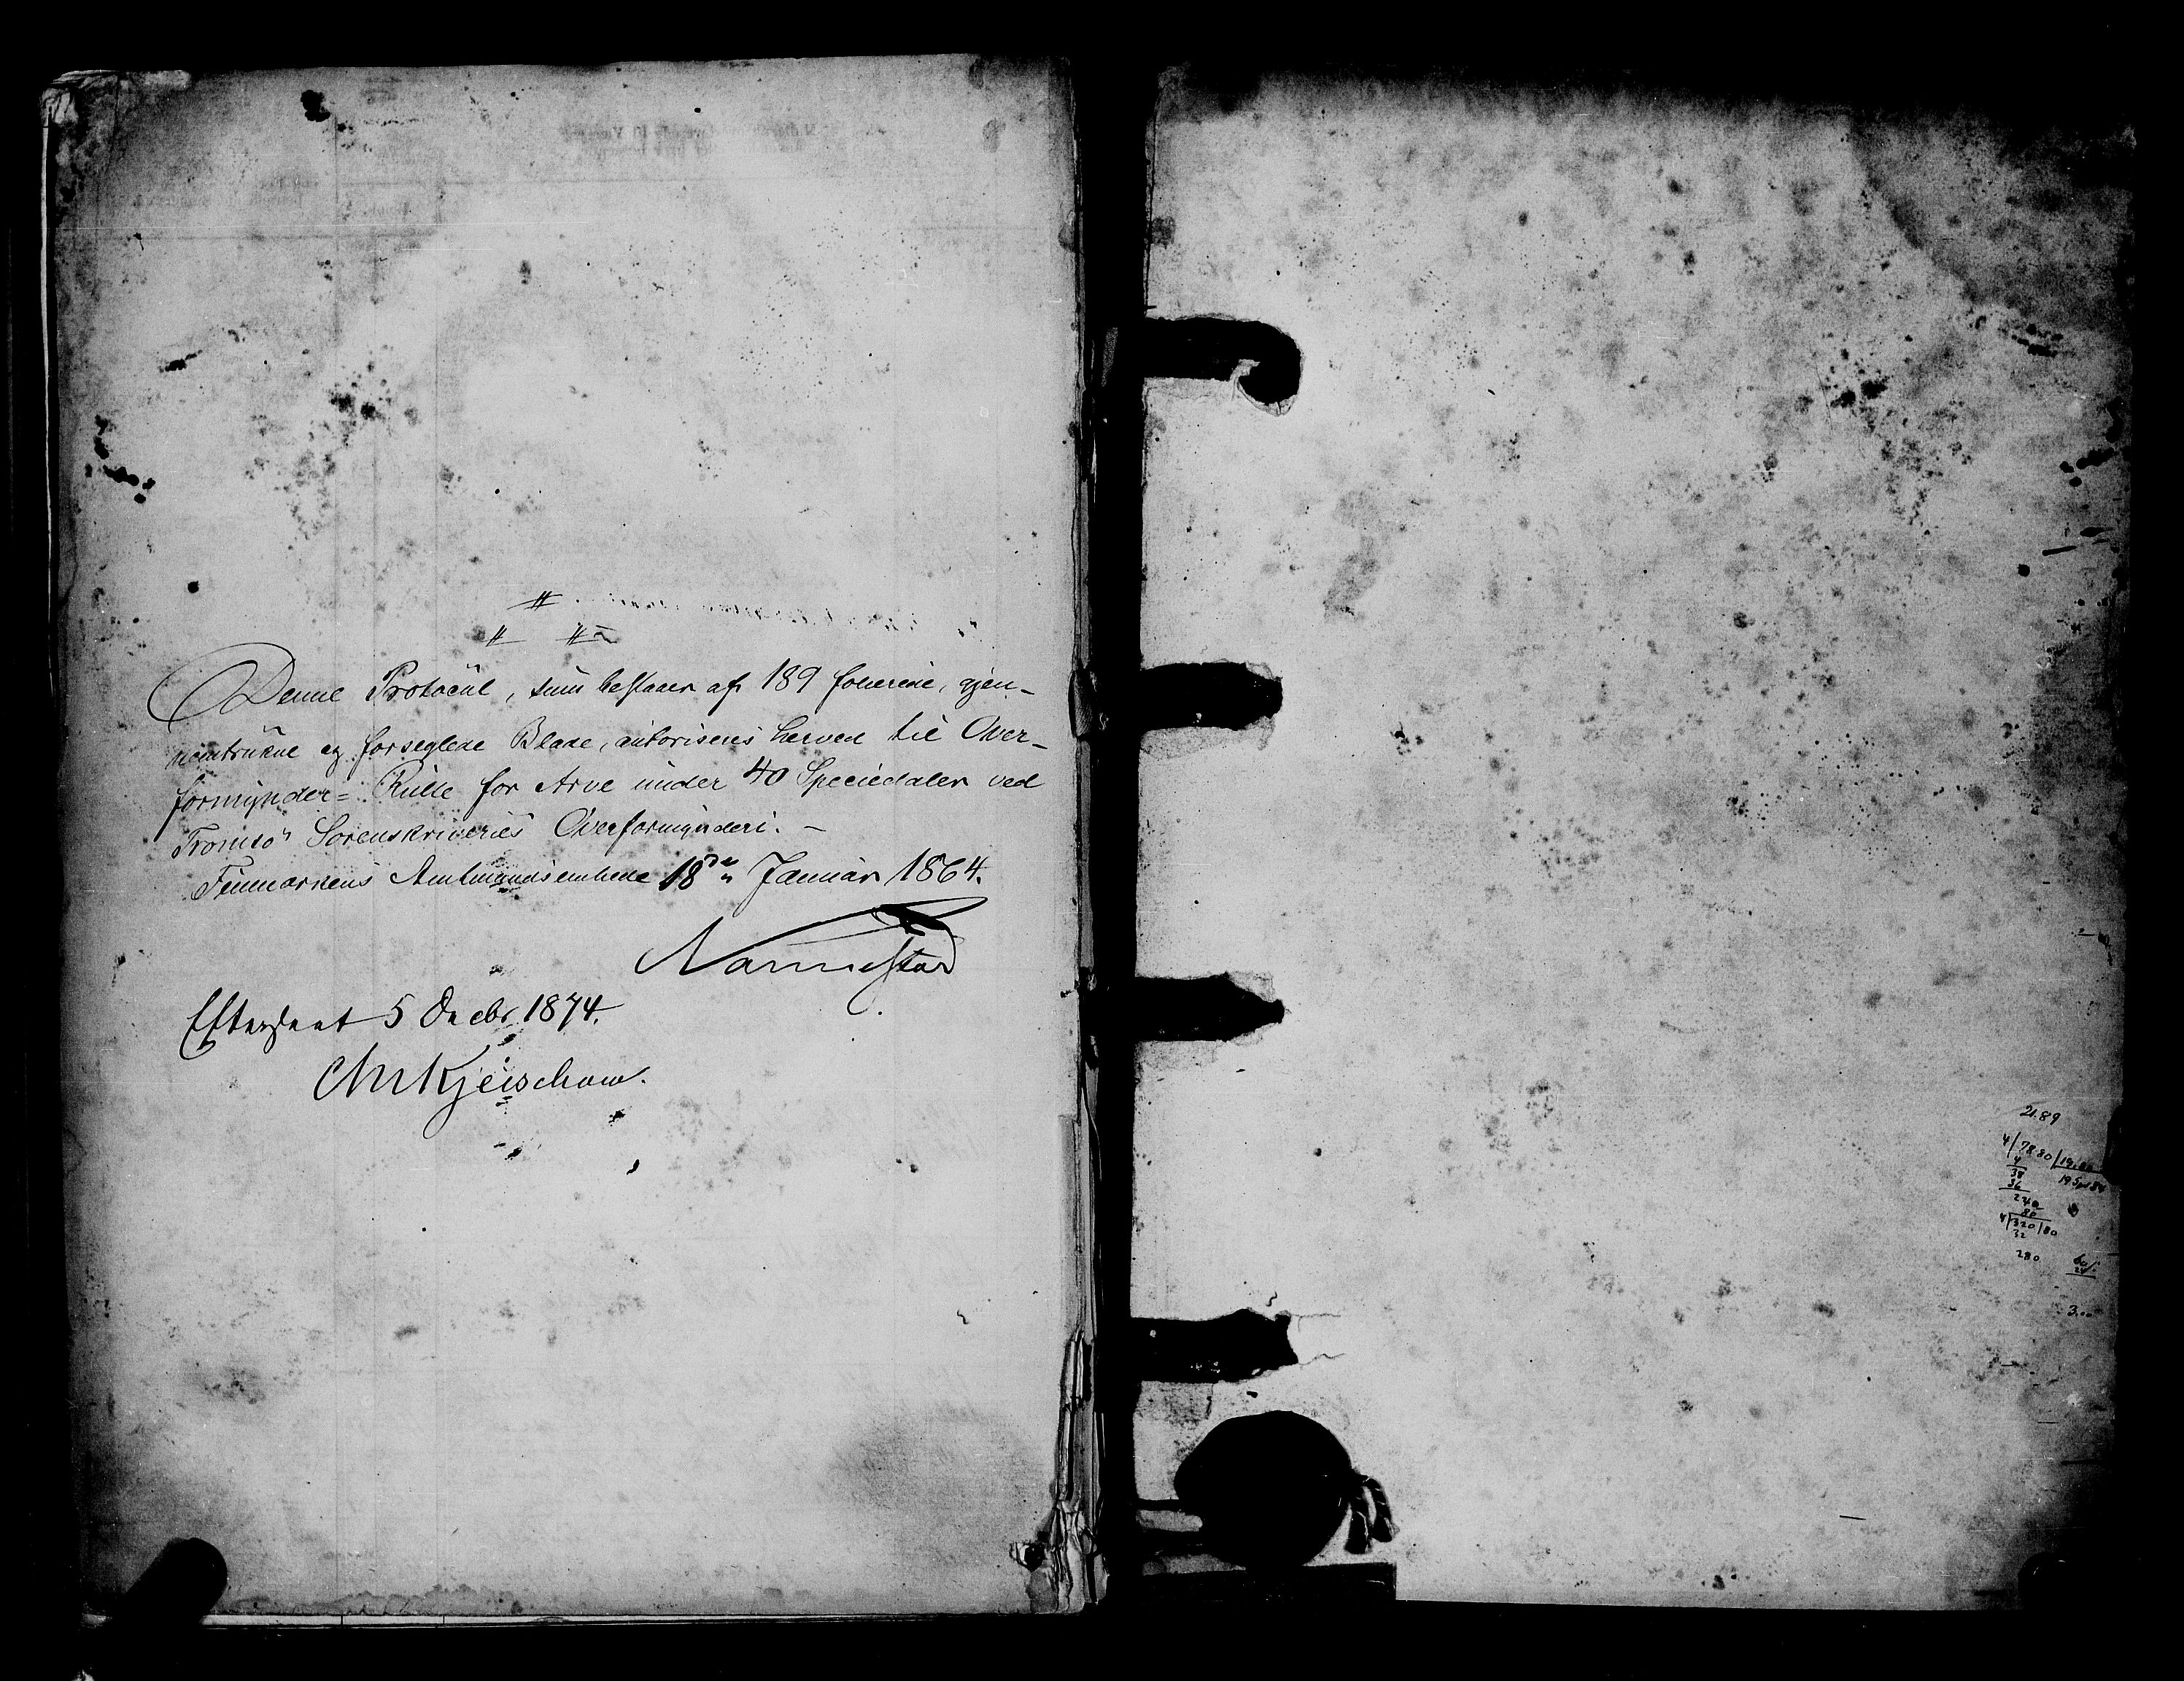 Denne Protocol, som bestaaer af 189 folierede, gjen-
nemtrukne og forseglede Blade, autoriseres herved til Over-
formynder= Rulle for Arve under 40 Speciedaler ved
Tromsö Sorenskriveries Overformynderi. –
Finmarkens Amtmandsembede 18de Januar 1864.
Nannestad
Efterseet 5 Decbr 1874.
Kjeischow.
21.89
4/7880/19
4
38
36
240
80
4/320/80
32
280
60
24
3..